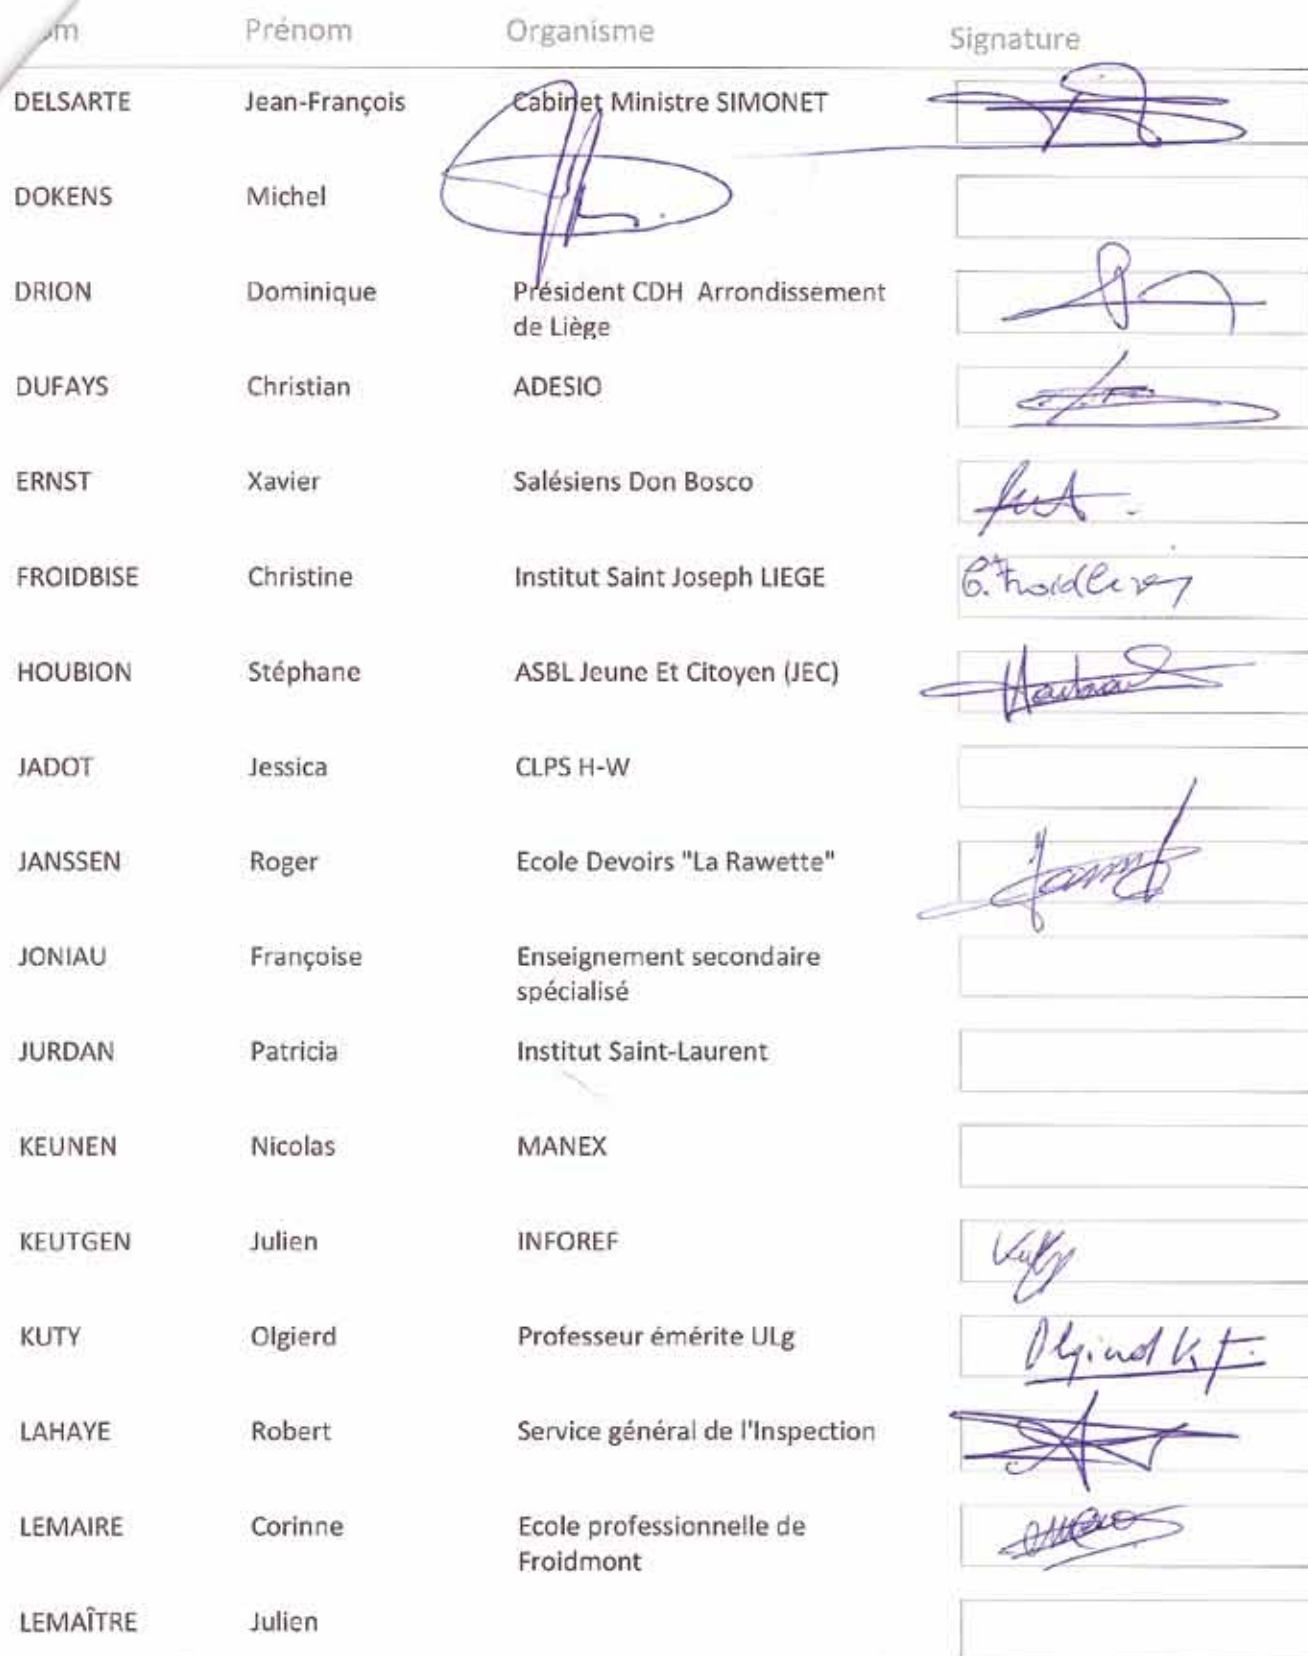 om Prénom Organisme Signature
DELSARTE Jean-François Cabinet Ministre SIMONET
DOKENS Michel
DRION Dominique Président CDH Arrondissement
de Liège
DUFAYS Christian ADESIO
ERNST Xavier Salésiens Don Bosco
FROIDBISE Christine Institut Saint Joseph LIEGE
HOUBION Stéphane ASBL Jeune Et Citoyen (JEC)
JADOT Jessica CLPS H-W
JANSSEN Roger Ecole Devoirs "La Rawette"
JONIAU Françoise Enseignement secondaire
spécialisé
JURDAN Patricia Institut Saint-Laurent
KEUNEN Nicolas MANEX
KEUTGEN Julien INFOREF
KUTY Olgierd Professeur émérite ULg
LAHAYE Robert Service général de l'Inspection
LEMAIRE Corinne Ecole professionnelle de
Froidmont
LEMAÎTRE Julien